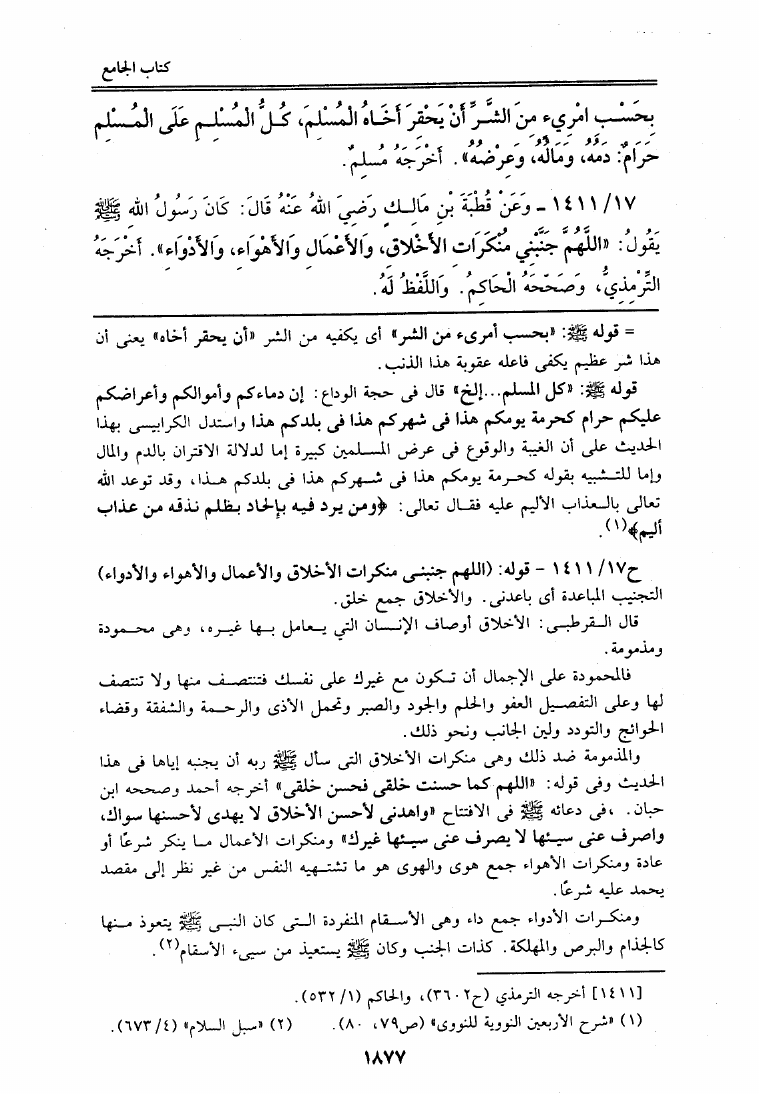 كتاب الجامع
بِحَسْبِ امْرِيءٍ مِنَ الشَّرِّ أَنْ يَحْقِرَ أَخَاهُ الْمُسْلِمَ، كُلُّ الْمُسْلِمِ عَلَى الْمُسْلِمِ
حَرَامٌ: دَمُهُ، وَمَالُهُ، وَعِرْضُهُ». أَخْرَجَهُ مُسْلِمٌ.
١٤١١/١٧ ـ وَعَنْ قُطْبَةَ بْنِ مَالِكٍ رَضِيَ اللهُ عَنْهُ قَالَ: كَانَ رَسُولُ اللهِ ﷺ
يَقُولُ: «اللَّهُمَّ جَنِّبْنِي مُنْكَرَاتِ الأَخْلاقِ، وَالأَعْمَالِ وَالأَهْوَاءِ، وَالأَدْوَاءِ». أَخْرَجَهُ
التِّرْمِذِيُّ، وَصَحَّحَهُ الْحَاكِمُ. وَاللَّفْظُ لَهُ.
= قوله ﷺ: «بحسب أمرىء من الشر» أى يكفيه من الشر «أن يحقر أخاه» يعنى أن
هذا شر عظيم يكفى فاعله عقوبة هذا الذنب.
قوله ﷺ: «كل المسلم...إلخ» قال فى حجة الوداع: إن دماءكم وأموالكم وأعراضكم
عليكم حرام كحرمة يومكم هذا فى شهركم هذا فى بلدكم هذا واستدل الكرابيسى بهذا
الحديث على أن الغيبة والوقوع فى عرض المسلمين كبيرة إما لدلالة الاقتران بالدم والمال
وإما للتشبيه بقوله كحرمة يومكم هذا فى شهركم هذا فى بلدكم هذا، وقد توعد الله
تعالى بالعذاب الأليم عليه فقال تعالى: ﴿ومن يرد فيه بإلحاد بظلم نذقه من عذاب
أليم﴾(١).
ح١٤١١/١٧ - قوله: (اللهم جنبنى منكرات الأخلاق والأعمال والأهواء والأدواء)
التجنيب المباعدة أى باعدنى. والأخلاق جمع خلق.
قال القرطبى: الأخلاق أوصاف الإنسان التي يعامل بها غيره، وهى محمودة
ومذمومة.
فالمحمودة على الإجمال أن تكون مع غيرك على نفسك فتنتصف منها ولا تنتصف
لها وعلى التفصيل العفو والحلم والجود والصبر وتحمل الأذى والرحمة والشفقة وقضاء
الحوائج والتودد ولين الجانب ونحو ذلك.
والمذمومة ضد ذلك وهى منكرات الأخلاق التى سأل ﷺ ربه أن يجنبه إياها فى هذا
الحديث وفى قوله: «اللهم كما حسنت خلقى فحسن خلقى» أخرجه أحمد وصححه ابن
حبان. ،فى دعائه ﷺ فى الافتتاح «واهدنى لأحسن الأخلاق لا يهدى لأحسنها سواك،
واصرف عنى سيئها لا يصرف عنى سيئها غيرك» ومنكرات الأعمال ما ينكر شرعًا أو
عادة ومنكرات الأهواء جمع هوى والهوى هو ما تشتهيه النفس من غير نظر إلى مقصد
يحمد عليه شرعًا.
ومنكرات الأدواء جمع داء وهى الأسقام المنفردة التى كان النبى ﷺ يتعوذ منها
كالجذام والبرص والمهلكة. كذات الجنب وكان ﷺ يستعيذ من سيىء الأسقام(٢).
[١٤١١] أخرجه الترمذي (ح٣٦٠٢)، والحاكم (٥٣٢/١).
(١) «شرح الأربعين النووية للنووى» (ص٧٩، ٨٠). (٢) «سبل السلام» (٦٧٣/٤).
١٨٧٧